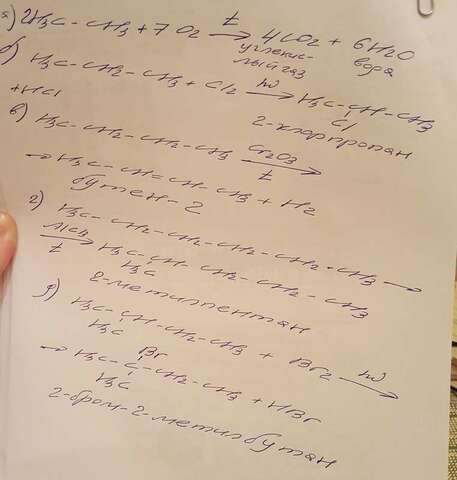 а) 2H₃C - CH₃ + 7O₂ →(t) 4CO₂ + 6H₂O
углекислый газ вода
б) H₃C - CH₂ - CH₃ + Cl₂ →(hν) H₃C - CH - CH₃
Cl
+ HCl
2-хлорпропан
в) H₃C - CH₂ - CH₂ - CH₃ →(Cr₂O₃, t)
→ H₃C - CH = CH - CH₃ + H₂
бутен-2
г) H₃C - CH₂ - CH₂ - CH₂ - CH₂ - CH₃ →
→(AlCl₃, t) H₃C - CH - CH₂ - CH₂ - CH₃
H₃C
2-метилпентан
д) H₃C - CH - CH₂ - CH₃ + Br₂ →(hν)
H₃C
Br
→ H₃C - C - CH₂ - CH₃ + HBr
H₃C
2-бром-2-метилбутан